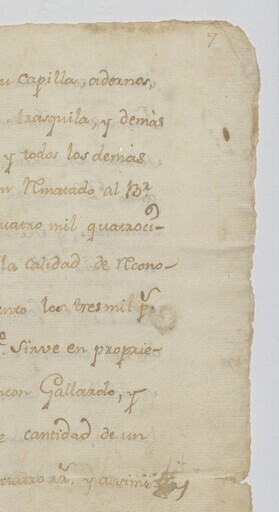 7
u capilla, adornos,
trasquila, y demàs
y todos los demàs
n Rematado al Br
uatro mil quatroci-
la calidad de Recono-
ento los tres mil ps.
o. Sirve en proprie-
con Gallardo, y
e cantidad de un
uatro rs. y asimis